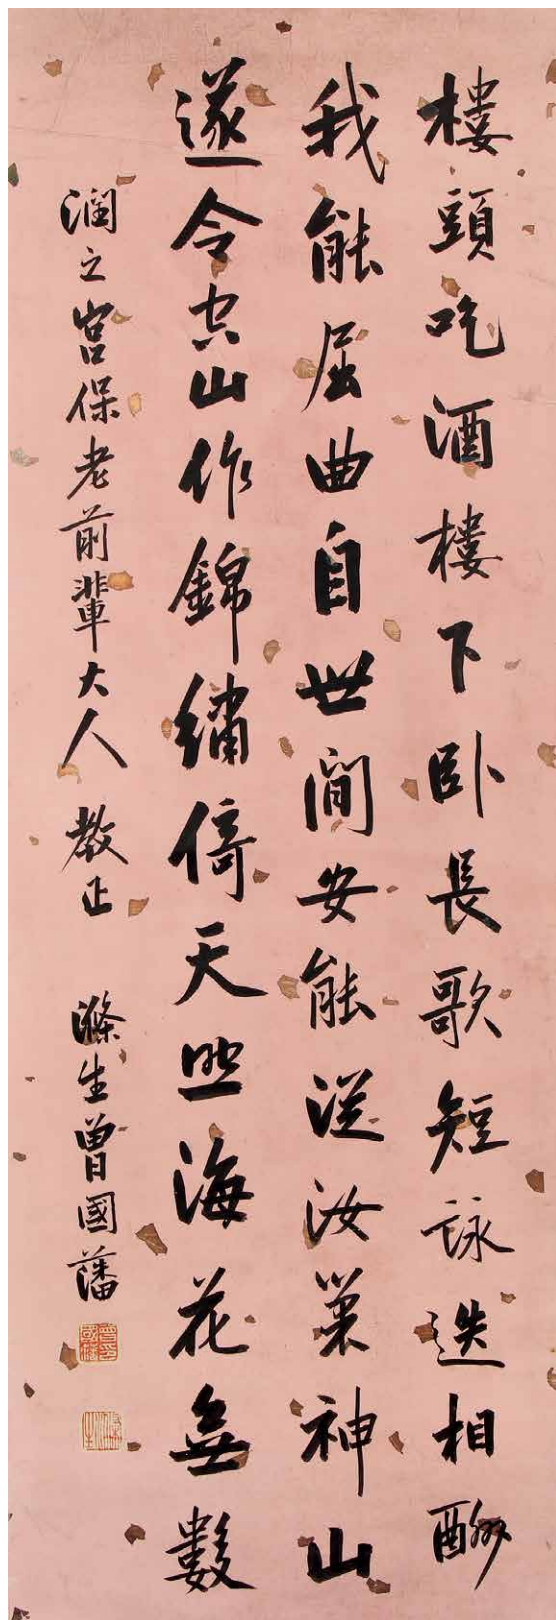 樓頭吃酒樓下卧長歌短詠迭相酬
我能屈曲自世間安能從汝巢神山
遂令空山作錦繡倚天照海花無數
潤之宮保老前輩大人 教正 滌生曾國藩